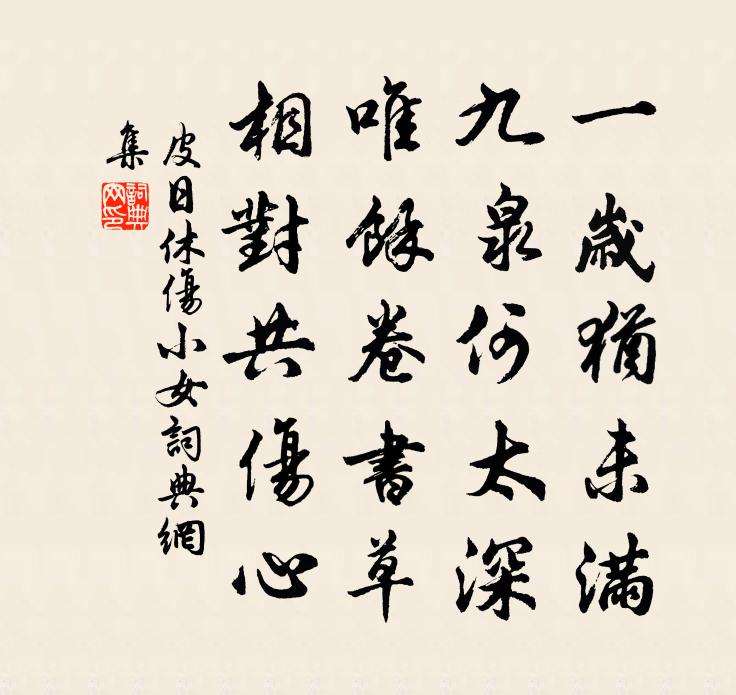 一歲猶未滿
九泉何太深
唯餘卷書草
相對共傷心
皮日休傷小女詞典網
集
詞典
网印